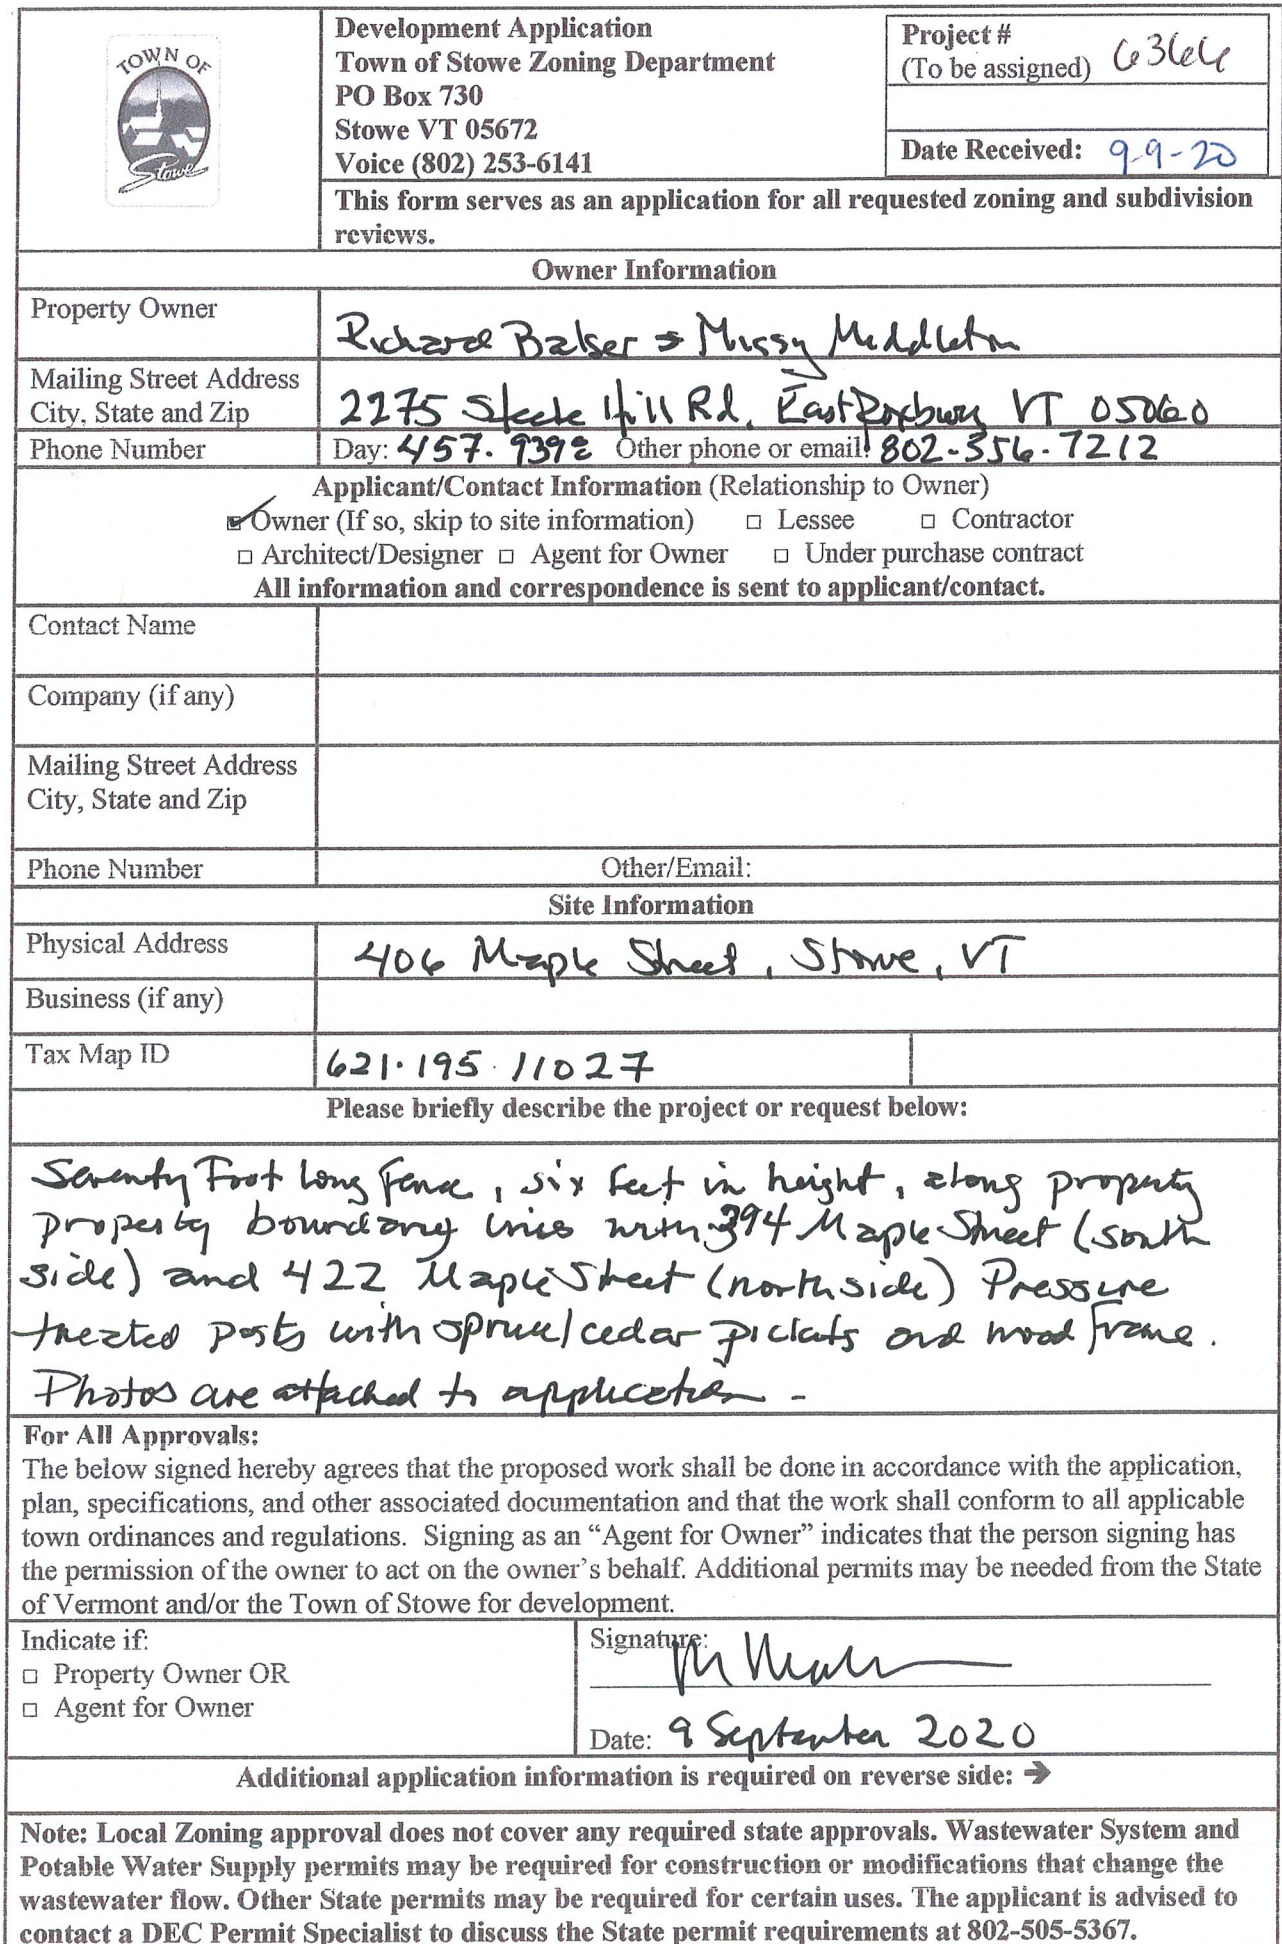 TOWN OF
Stowe
Development Application
Town of Stowe Zoning Department
PO Box 730
Stowe VT 05672
Voice (802) 253-6141
Project #
(To be assigned) 6366
Date Received: 9-9-20
This form serves as an application for all requested zoning and subdivision
reviews.
Owner Information
Property Owner
Richard Balser + Missy Middleton
Mailing Street Address
City, State and Zip
2275 Steele Hill Rd, East Roxbury VT 05060
Phone Number
Day: 457-9392 Other phone or email: 802-356-7212
Applicant/Contact Information (Relationship to Owner)
☑ Owner (If so, skip to site information) □ Lessee □ Contractor
□ Architect/Designer □ Agent for Owner □ Under purchase contract
All information and correspondence is sent to applicant/contact.
Contact Name
Company (if any)
Mailing Street Address
City, State and Zip
Phone Number
Other/Email:
Site Information
Physical Address
406 Maple Street, Stowe, VT
Business (if any)
Tax Map ID
621.195.11027
Please briefly describe the project or request below:
Seventy Foot long fence, six feet in height, along property
property boundary lines with 394 Maple Street (south
side) and 422 Maple Street (north side) Pressure
treated posts with spruce/cedar pickets and wood frame.
Photos are attached to application -
For All Approvals:
The below signed hereby agrees that the proposed work shall be done in accordance with the application,
plan, specifications, and other associated documentation and that the work shall conform to all applicable
town ordinances and regulations. Signing as an “Agent for Owner” indicates that the person signing has
the permission of the owner to act on the owner’s behalf. Additional permits may be needed from the State
of Vermont and/or the Town of Stowe for development.
Indicate if:
□ Property Owner OR
□ Agent for Owner
Signature:
Date: 9 September 2020
Additional application information is required on reverse side: ➔
Note: Local Zoning approval does not cover any required state approvals. Wastewater System and
Potable Water Supply permits may be required for construction or modifications that change the
wastewater flow. Other State permits may be required for certain uses. The applicant is advised to
contact a DEC Permit Specialist to discuss the State permit requirements at 802-505-5367.